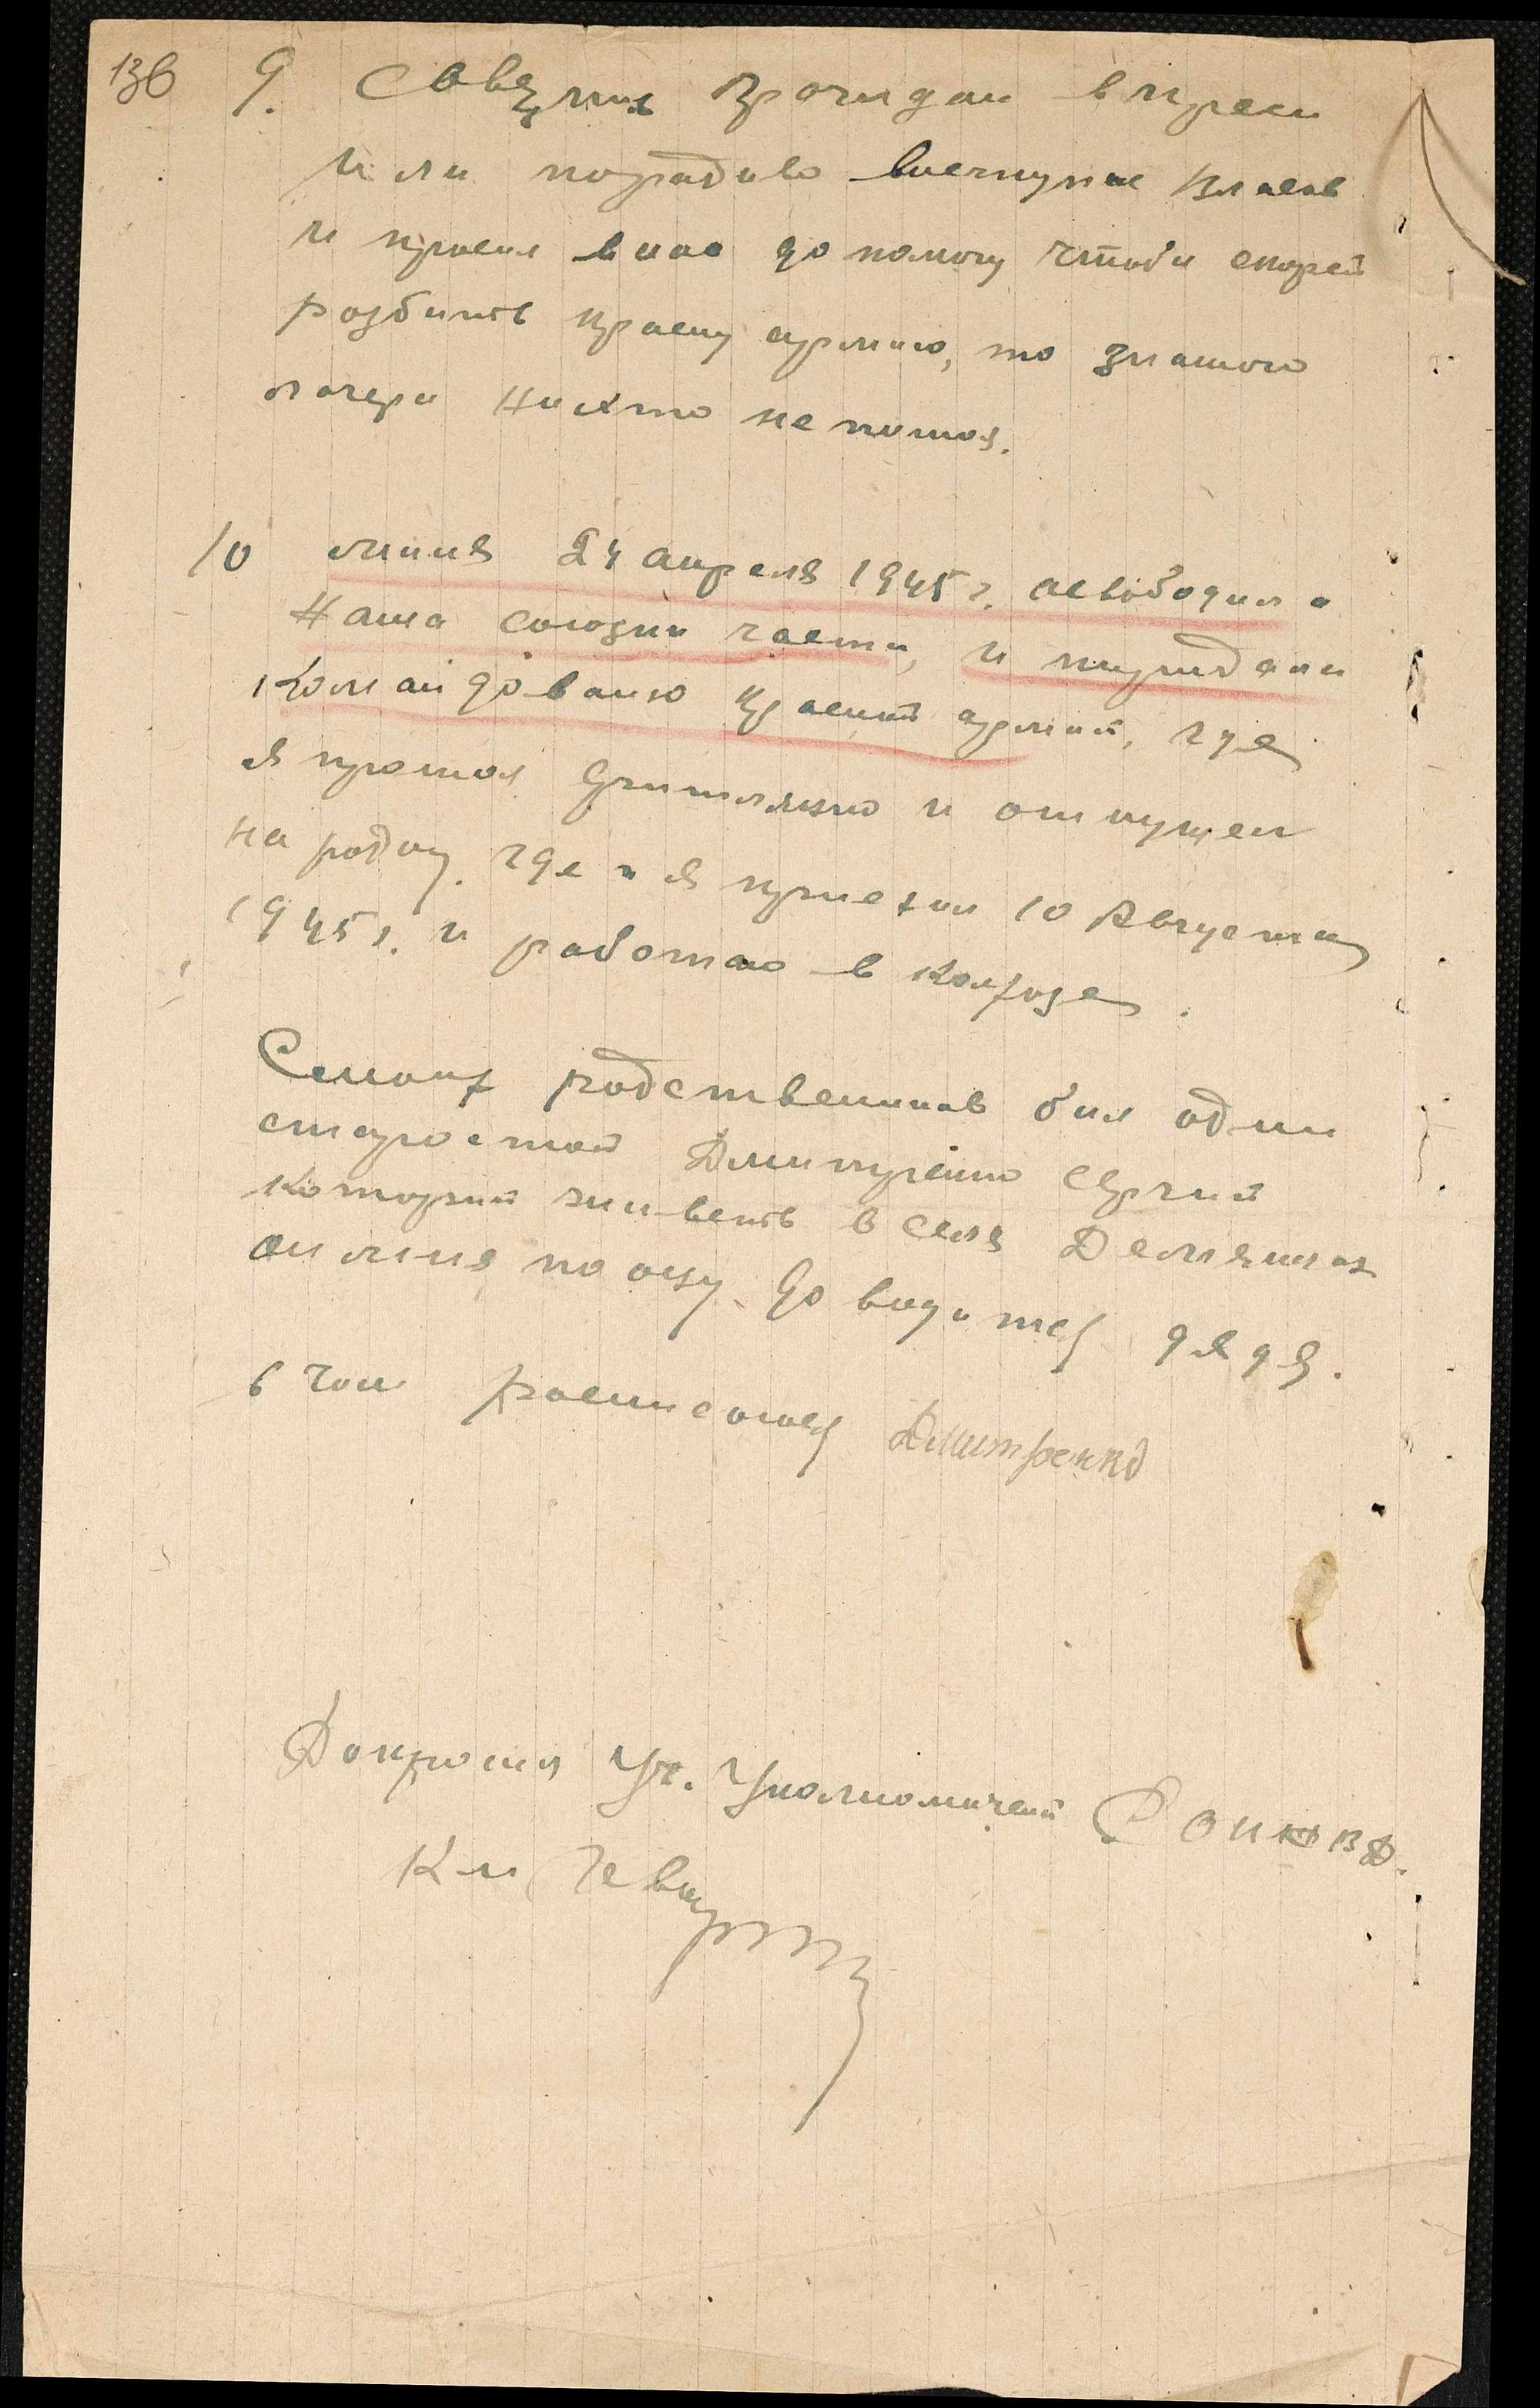 13б
9. Советских граждан в преси
или порадило виступае Власов
и просил в нас до помогу чтоби скорей
розбить красну армию, то знашого
лагеря никто не пошол.
10 миня 24 апреля 1945 г. асвободила
Наша союзни части, и передали
Командованю Красной армии, где
я прошол и отпущен
на родину. где и я приехал 10 Августа
1945 г. и работаю в колгозе.
Смоих родственников бил один
старостой Дмитренко Сергий
которий живеть в селе Демянцах
он мине по оцу доводится дядя.
в чом росписался Дмитренко
Допросил Уч. Уполномочений РОНКВД.
К-м